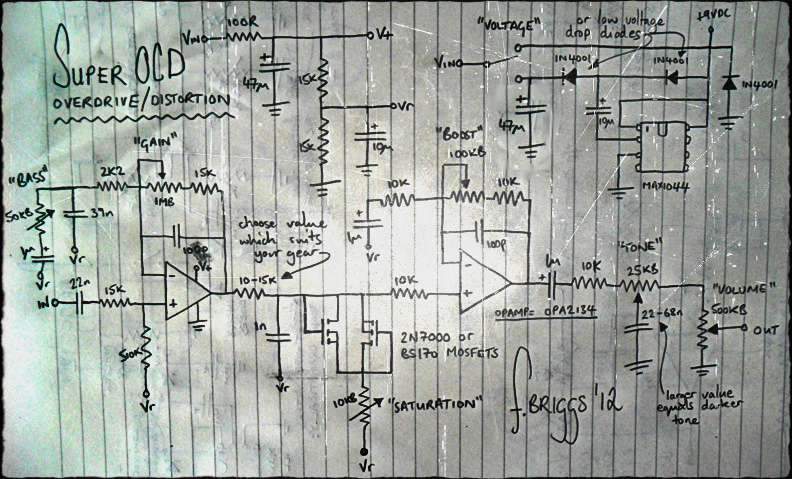 SUPER OCD
OVERDRIVE/DISTORTION
VIN
100R
V+
47µ
15k
Vr
15k
10µ
"VOLTAGE"
or low voltage
drop diodes
+9VDC
VIN
1N4001
1N4001
1N4001
47µ
10µ
1
MAX1044
"BASS"
50kB
39n
1µ
Vr
Vr
2k2
"GAIN"
1MB
15k
100p
V+
IN
22n
15k
-
+
510k
Vr
choose value
which suits
your gear
10-15k
1n
Vr
2N7000 or
BS170 MOSFETS
10kB
"SATURATION"
Vr
10k
1µ
Vr
"BOOST"
100KB
10k
100p
10k
-
+
OPAMP= OPA2134
1µ
10k
"TONE"
25KB
22-68n
larger value
equals darker
tone
"VOLUME"
500KB
OUT
f. BRIGGS '12